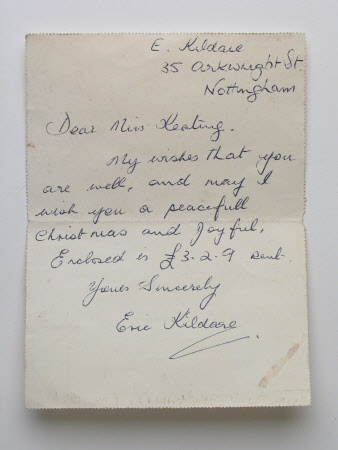 E. Kildare
35 Arkwright St
Nottingham
Dear Miss Keating.
My wishes that you
are well, and may I
wish you a peacefull
Christmas and Joyful,
Enclosed is £3-2-9 rent.
Yours Sincerely
Eric Kildare